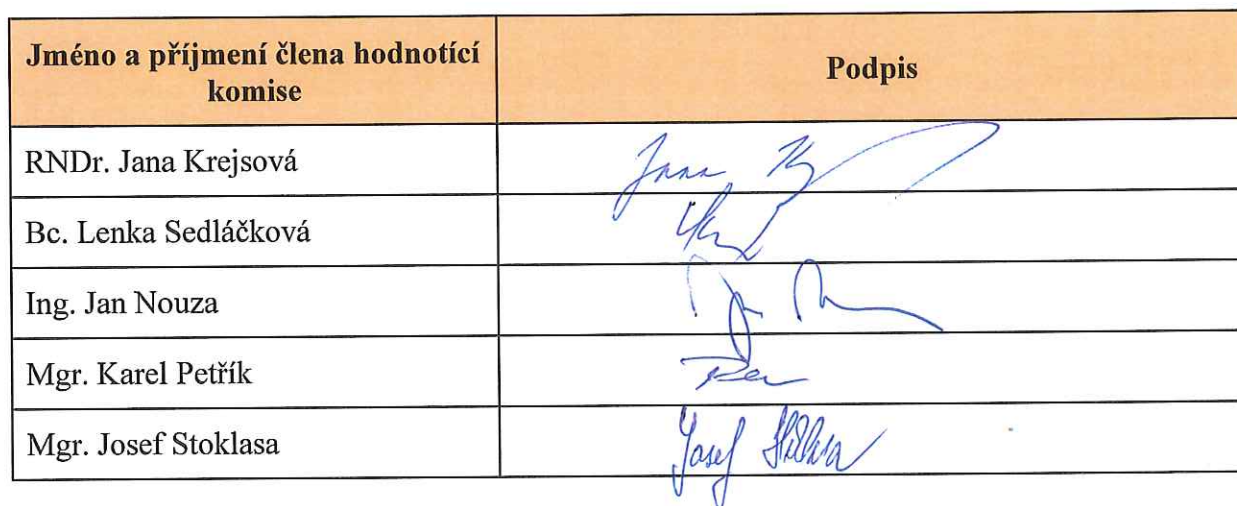 Jméno a příjmení člena hodnotící
komise
Podpis
RNDr. Jana Krejsová
Jana
Bc. Lenka Sedláčková
Ing. Jan Nouza
Mgr. Karel Petřík
Mgr. Josef Stoklasa
Josef